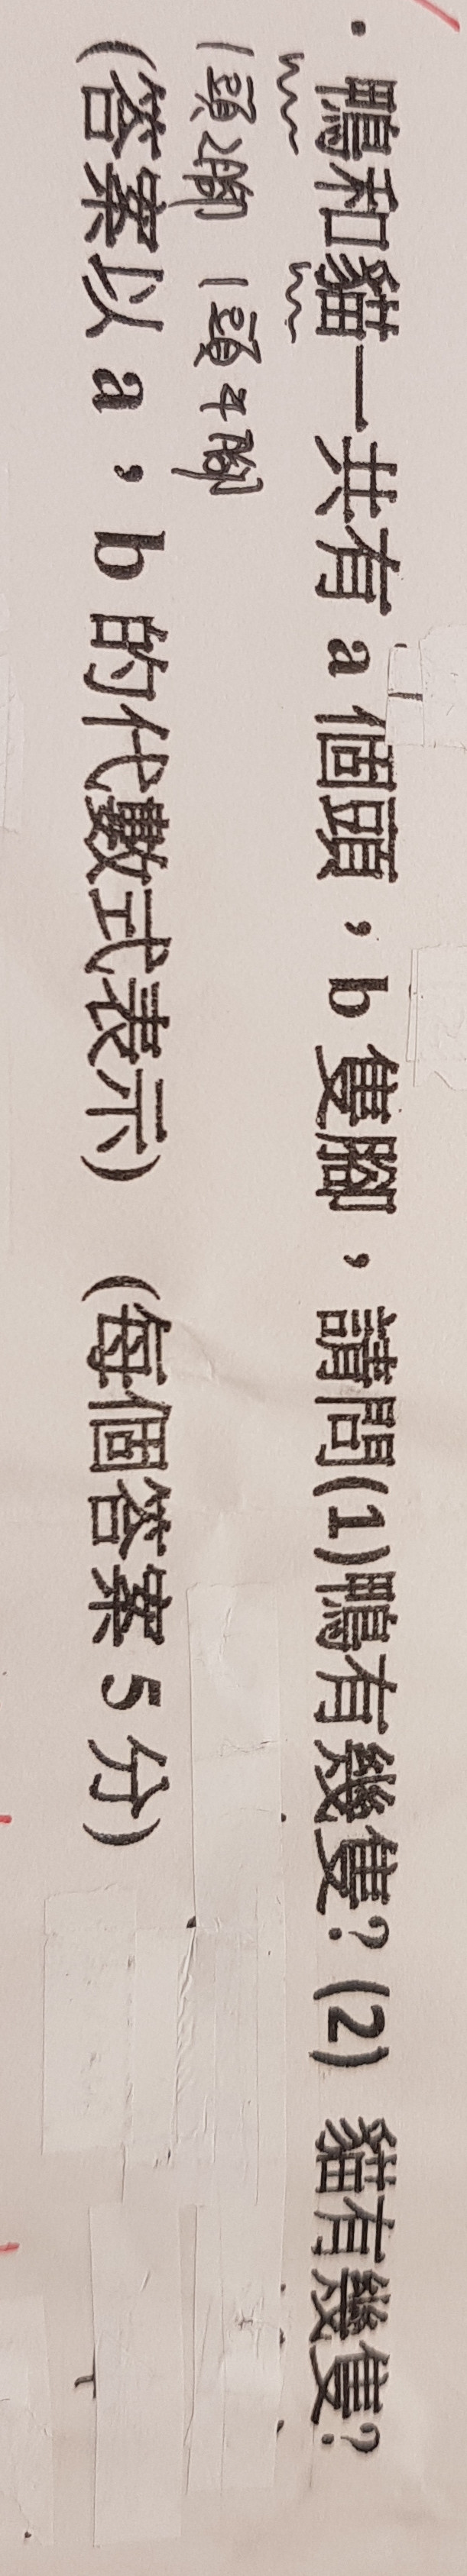 ．鴨和貓一共有 a 個頭，b 隻腳，請問(1)鴨有幾隻？(2) 貓有幾隻？
1頭2腳 1頭4腳
(答案以 a，b 的代數式表示) (每個答案 5 分)